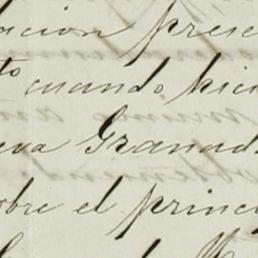 ación presc
to cuando hici
eva Granad
obre el princ